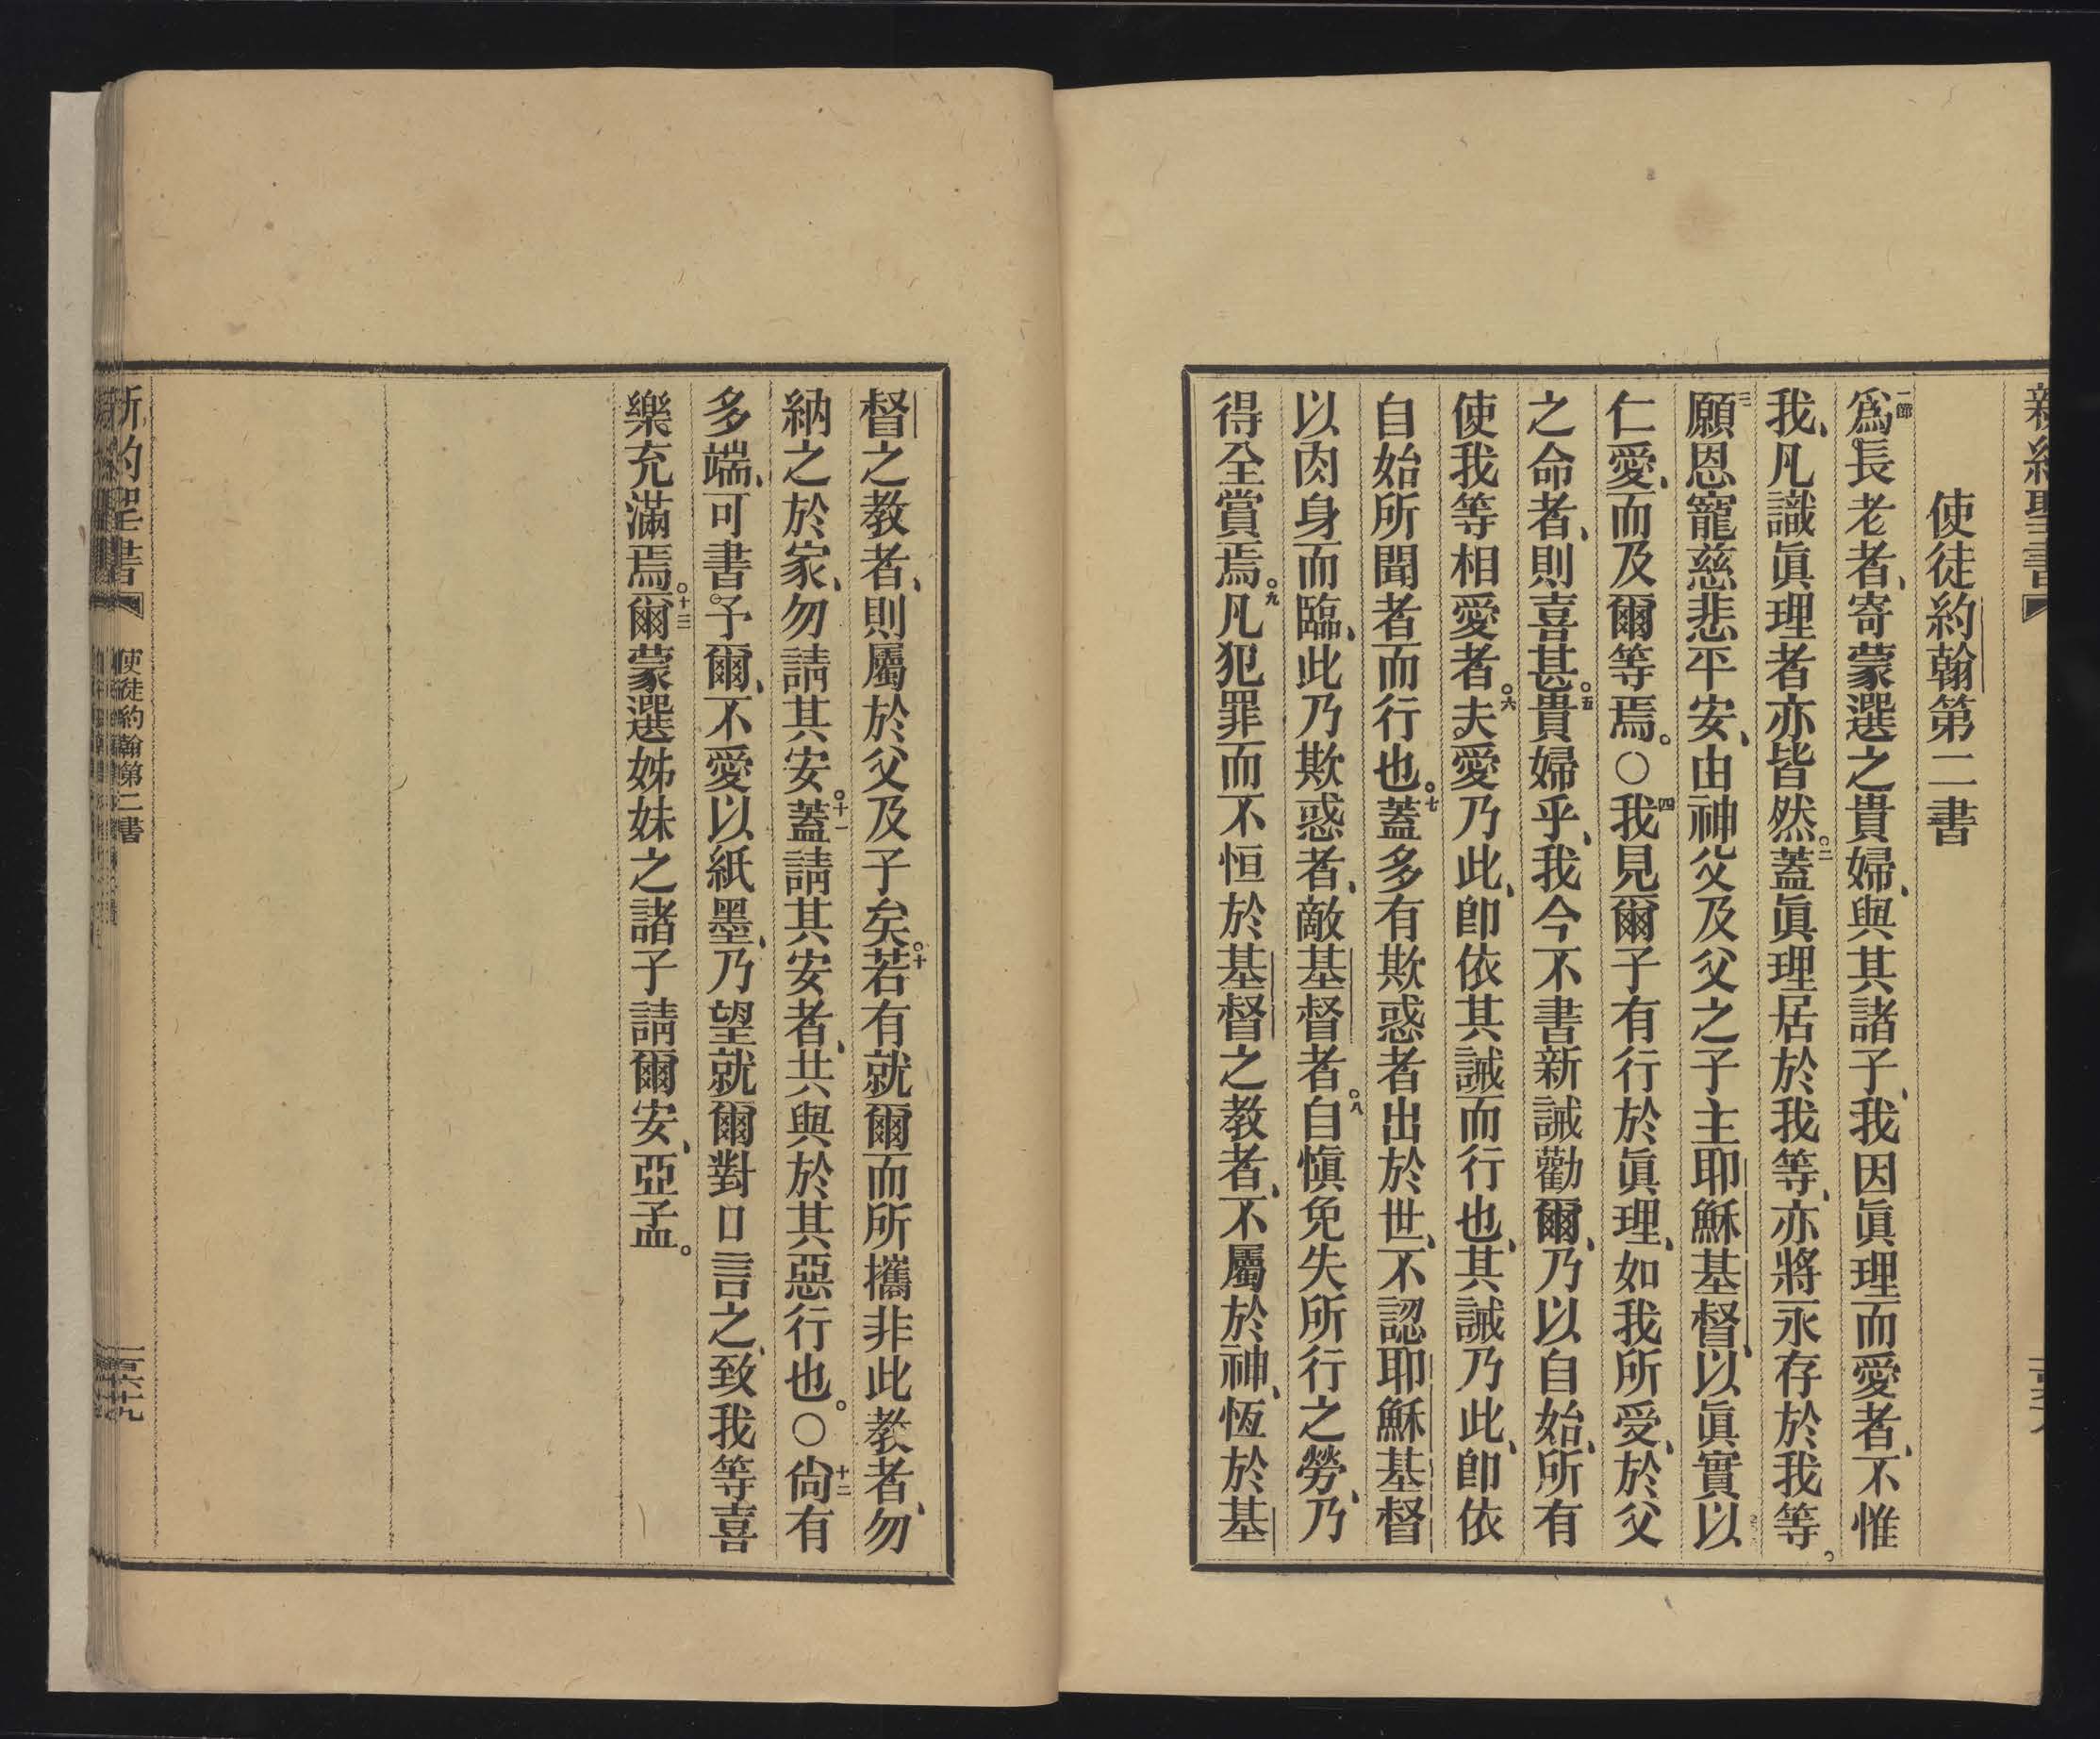 新約聖書
使徒約翰第二書
一節爲長老者、寄蒙選之貴婦、與其諸子、我因眞理而愛者、不惟
我、凡識眞理者亦皆然。二蓋眞理居於我等、亦將永存於我等。
三願恩寵慈悲平安、由神父及父之子主耶穌基督、以眞實以
仁愛、而及爾等焉。○四我見爾子有行於眞理、如我所受、於父
之命者、則喜甚。五貴婦乎、我今不書新誡勸爾、乃以自始、所有
使我等相愛者。六夫愛乃此、卽依其誡而行也、其誡乃此、卽依
自始所聞者而行也。七蓋多有欺惑者出於世、不認耶穌基督
以肉身而臨、此乃欺惑者、敵基督者。八自愼免失所行之勞、乃
得全賞焉。九凡犯罪而不恒於基督之教者、不屬於神、恆於基
督之教者、則屬於父及子矣。十若有就爾而所攜非此教者、勿
納之於家、勿請其安。十一蓋請其安者、共與於其惡行也。○十二尙有
多端、可書予爾、不愛以紙墨、乃望就爾對口言之、致我等喜
樂充滿焉。十三爾蒙選姊妹之諸子請爾安、亞孟。
新約聖書 使徒約翰第二書